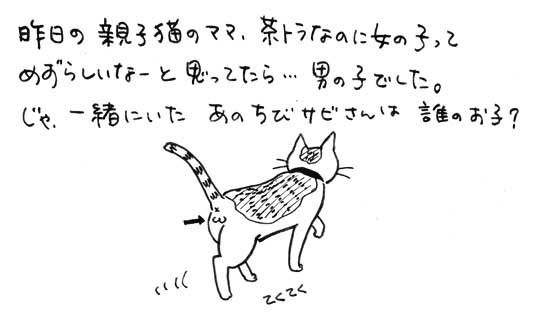 昨日の親子猫のママ、茶トラなのに女の子って
めずらしいなーと思ってたら…男の子でした。
じゃ、一緒にいた あのちびサビさんは 誰のお子?
てくてく